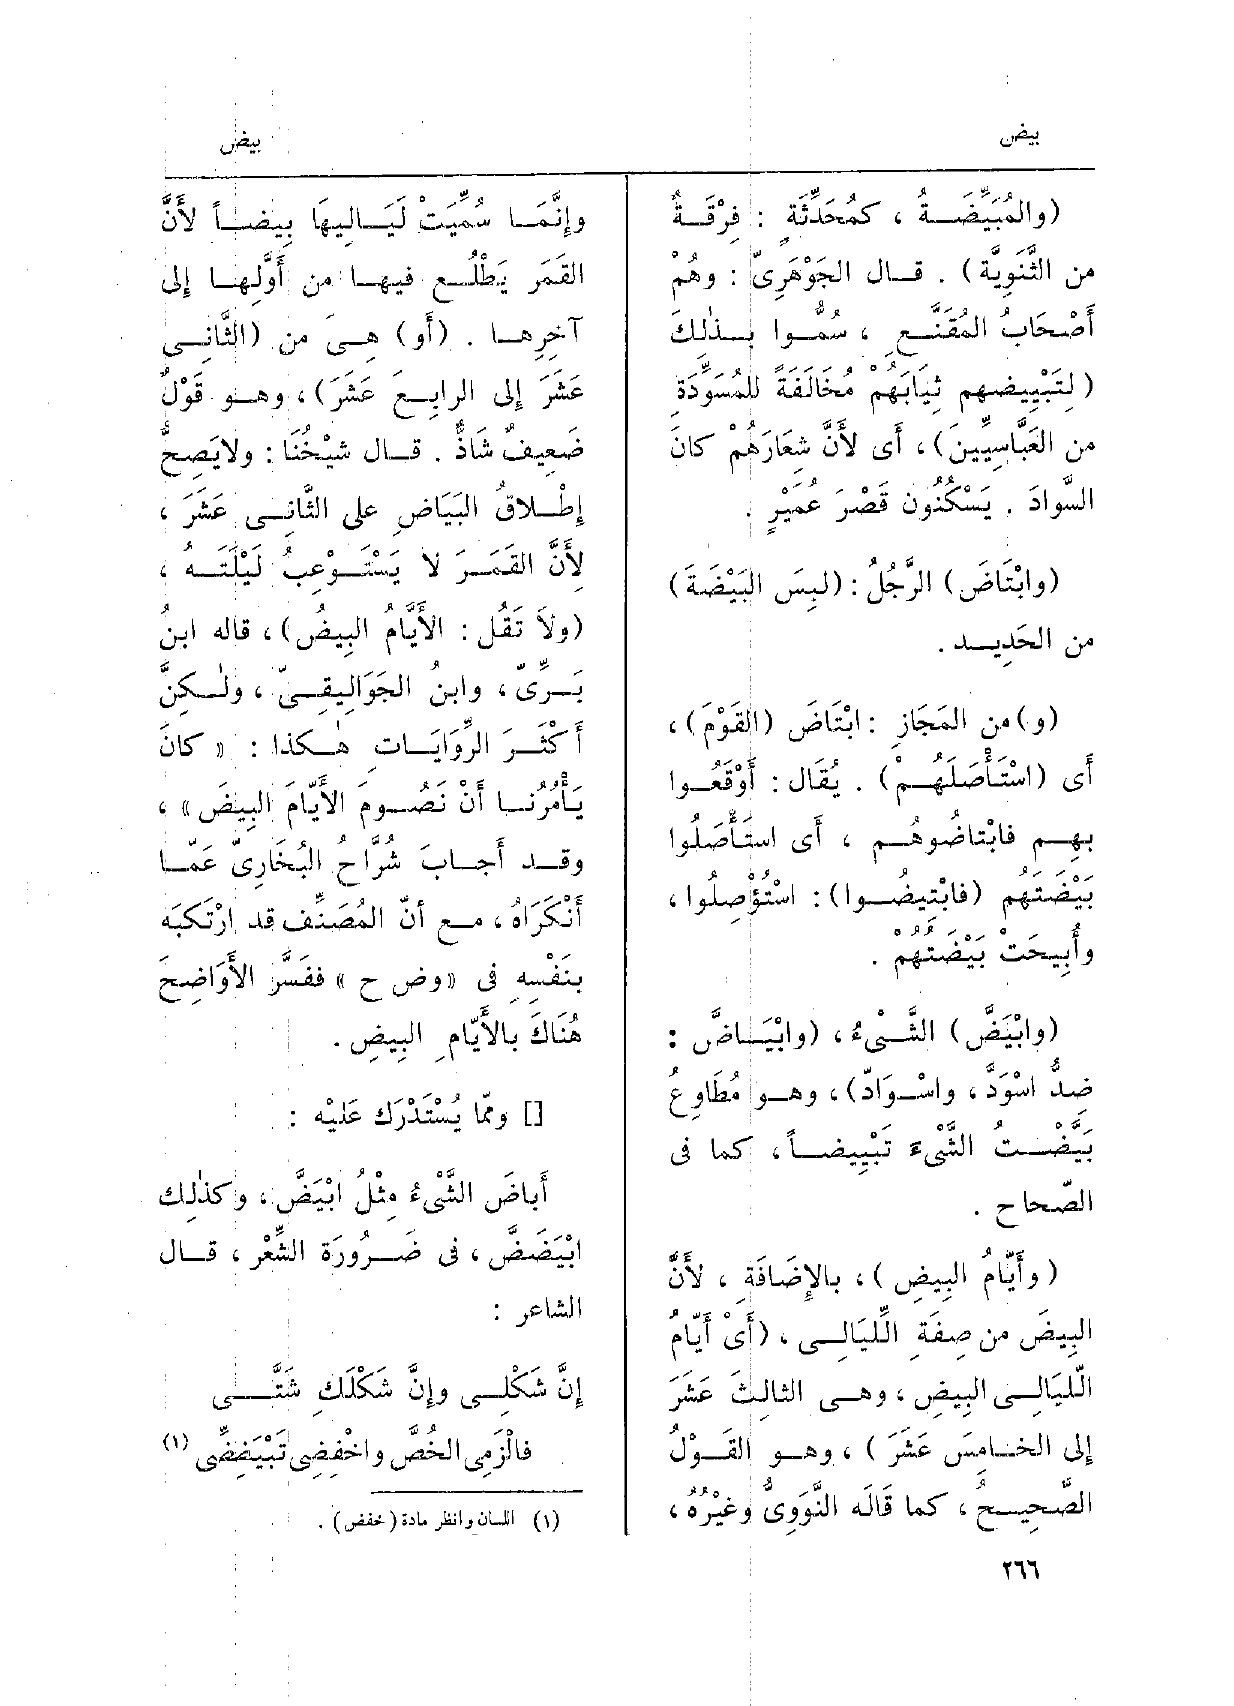 بيض
بيض
(والمُبَيِّضَـةُ ، كمُحَدِّثَةٍ : فِرْقَـةٌ
من الثَّنَوِيَّة) . قـال الجَوْهَرِىّ : وهُم
أَصْحَابُ المُقَنَّـعِ ، سُمُّـوا بـذٰلكَ
(لتَبْيِيضهِم ثِيَابَهُم مُخَالَفَةً للمُسَوِّدَةِ
من العَبَّاسِيِّينَ) ، أَى لأَنَّ شِعَارَهُم كانَ
السَّوادَ . يَسْكُنُون قَصْرَ عُمَيْرٍ .
(وابْتَاضَ) الرَّجُلُ : (لبِسَ البَيْضَةَ)
من الحَدِيـد .
(و)من المَجَازِ : ابْتَاضَ (القَوْمَ) ،
أَى (اسْتَأْصَلَهُـمْ) . يُقَال : أَوْقَعُـوا
بهِـم فابْتاضُوهُـم ، أَى استَأْصَلُوا
بَيْضَتَهُم (فابْتِيضُـوا) : اسْتُؤْصِلُوا ،
وأُبِيحَتْ بَيْضَتُهُم .
(وابْيَضَّ) الشَّـىْءُ ، (وابْيَـاضَّ :
ضِدُّ اسْوَدَّ ، واسْـوَادَّ) ، وهـو مُطَاوِعُ
بَيَّضْـتُ الشَّىْءَ تَبْيِيضـاً ، كما فى
الصّحاح .
(وأَيَّامُ البِيضِ) ، بالإِضَافَةِ ، لأَنَّ
البِيضَ من صِفَةِ اللَّيَالِـى ، (أَىْ أَيّامُ
الّليَالِـى البِيضِ ، وهـى الثالثَ عَشَرَ
إلى الخَـامِسَ عَشَرَ) ، وهـو القَـوْلُ
الصَّحِيـحُ ، كما قَالَه النَّوَوِىُّ وغَيْرُه ،
وإِنَّمَـا سُمِّيَتْ لَيَـالِيهَا بِيضـاً لأَنَّ
القَمَر يَطْلُـع فيهـا من أَوَّلهـا إلى
آخِرِهـا . (أَو) هِـىَ من (الثَّانِـى
عَشَرَ إلى الرابِـعَ عَشَرَ) ، وهـو قَوْلٌ
ضَعِيفٌ شَاذٌّ . قـال شيْخُنَا : ولايَصِحُّ
إِطْـلاقُ البَيَاضِ على الثَّانِـى عَشَرَ ،
لأَنَّ القَمَـرَ لا يَسْتَـوْعِبُ لَيْلَتَـه ،
(ولاَ تَقُل : الأَيّامُ البِيضُ) ، قاله ابنُ
بَـرِّىّ ، وابن الجَوَالِيقِـىّ ، ولٰـكِنَّ
أَكْثَـرَ الرِّوَايَـات هٰـكذا : « كانَ
يَأْمُرُنـا أَنْ نَصُـومَ الأَيّامَ البِيضَ » ،
وقـد أَجـابَ شُرَّاح البُخَارِىّ عَمّـا
أَنْكَرَاهُ ، مـع أَنّ المُصَنِّف قد ارْتَكَبَه
بنَفْسِهِ فى « وض ح » ففَسَّرَ الأَوَاضِحَ
هُنَاكَ بالأَيّامِ البِيضِ .
[] وممّا يُسْتَدْرَك عَلَيْه :
أَباضَ الشَّىْءُ مِثْلُ ابْيَضَّ ، وكذٰلك
ابْيَضَضَّ ، فى ضَـرُورَة الشِّعْر ، قـال
الشاعر :
إِنَّ شَكْلِـى وإِنَّ شَكْلَكِ شَتَّـى
فالْزَمِى الخُصَّ واخْفِضِى تَبْيَضِضِّى (١)
(١) اللسان وانظر مادة (خفض) .
٢٦٦